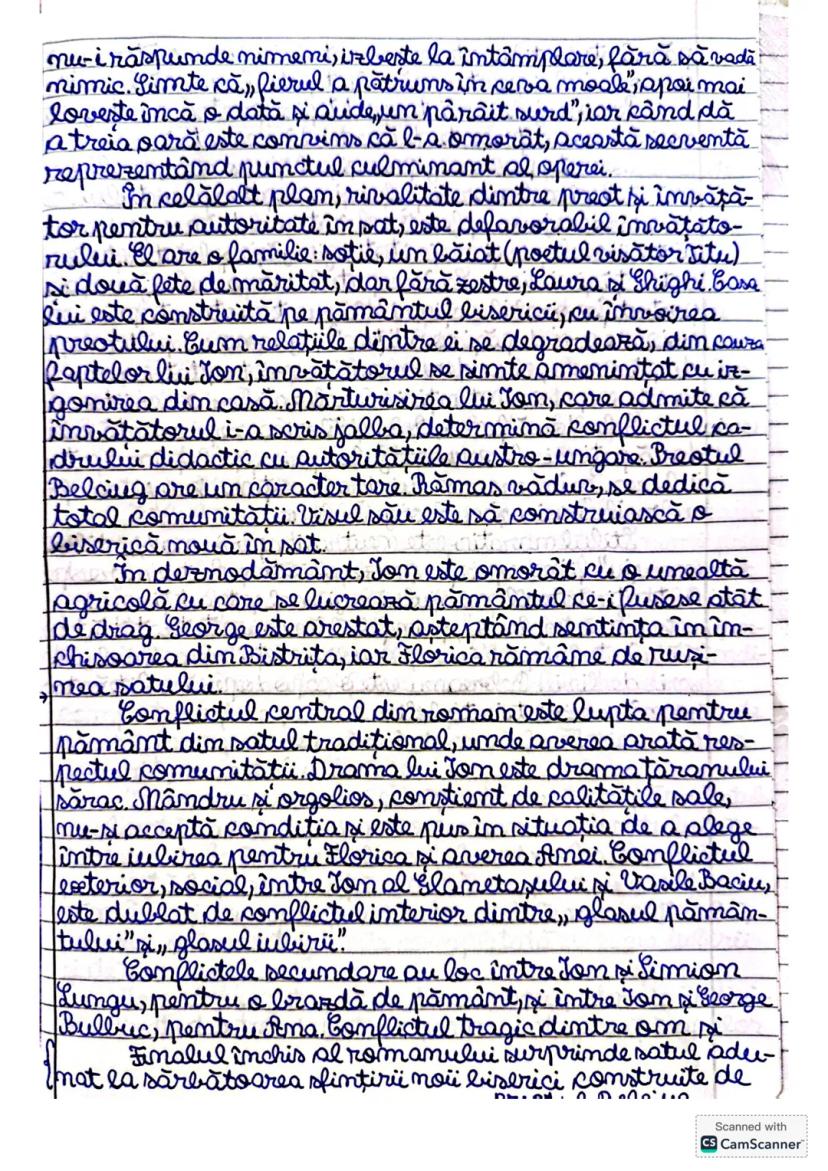 nu-i răspunde nimeni, izbește la întâmplare, fără să vadă
nimic. Simte că „fierul a pătruns în ceva moale", apoi mai
lovește încă o dată și aude „un pârâit surd", iar când dă
a treia oară este convins că l-a omorât, această secventă
reprezentând punctul culminant al operei.
În celălalt plan, rivalitate dintre preot și învăță-
tor pentru autoritate în sat, este defavorabil învățăto-
rului. El are o familie: soție, un băiat (poetul visător Titu)
și două fete de măritat, dar fără zestre, Laura și Ghighi. Casa
lui este construită pe pământul bisericii, cu învoirea
preotului. Cum relațiile dintre ei se degradează, din cauza
faptelor lui Ion, învățătorul se simte amenințat cu iz-
gonirea din casă. Mărturisirea lui Ion, care admite că
învățătorul i-a scris jalba, determină conflictul ca-
drului didactic cu autoritățiile austro-ungare. Preotul
Belciug are un caracter tare. Rămas văduv, se dedică
total comunității. Visul său este să construiască o
biserică nouă în sat.
În deznodământ, Ion este omorât cu o unealtă
agricolă cu care se lucrează pământul ce-i fusese atât
de drag. George este arestat, așteptând sentința în în-
chisoarea din Bistrița, iar Florica rămâne de ruși-
nea satului.
Conflictul central din roman este lupta pentru
pământ din satul tradițional, unde averea arată res-
pectul comunității. Drama lui Ion este drama țăranului
sărac. Mândru și orgolios, conștient de calitățile sale,
nu-și acceptă condiția și este pus în situația de a alege
între iubirea pentru Florica și averea Anei. Conflictul
exterior, social, între Ion al Glanetașului și Vasile Baciu,
este dublat de conflictul interior dintre „glasul pămân-
tului" și „glasul iubirii".
Conflictele secundare au loc între Ion și Simion
Lungu, pentru o brazdă de pământ, și între Ion și George
Bulbuc, pentru Ana. Conflictul tragic dintre om și
Finalul închis al romanului surprinde satul adu-
nat la sărbătoarea sfințirii noii biserici construite de
Scanned with
CS CamScanner